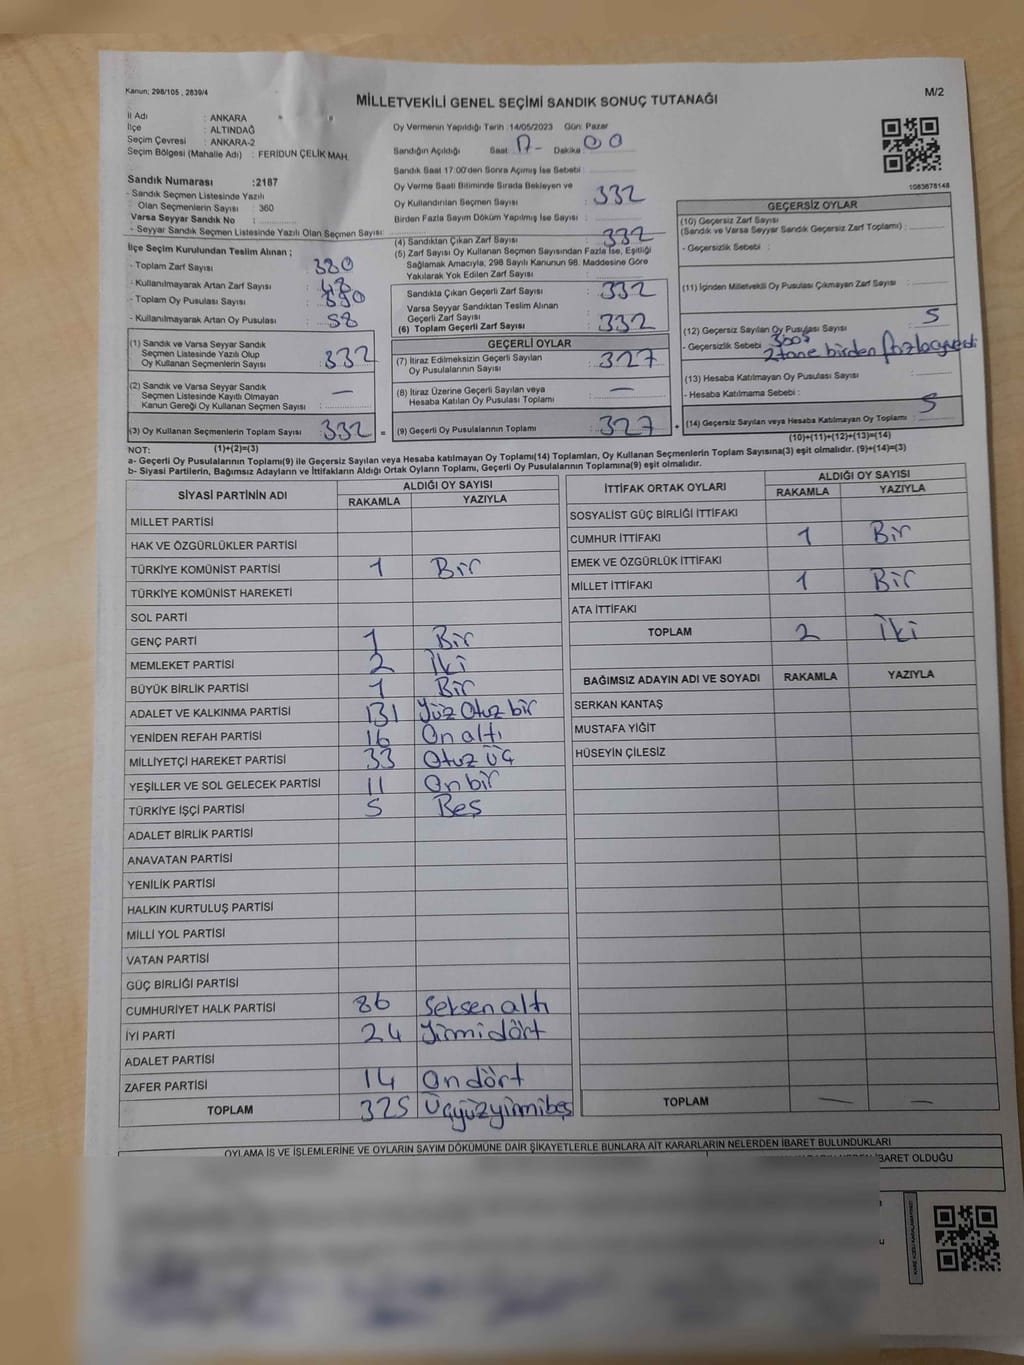 Kanun; 298/105 , 2839/4
MİLLETVEKİLİ GENEL SEÇİMİ SANDIK SONUÇ TUTANAĞI
M/2
İl Adı : ANKARA
İlçe : ALTINDAĞ
Seçim Çevresi : ANKARA-2
Seçim Bölgesi (Mahalle Adı) : FERİDUN ÇELİK MAH.
Sandık Numarası :2187
- Sandık Seçmen Listesinde Yazılı
Olan Seçmenlerin Sayısı : 360
Varsa Seyyar Sandık No :
- Seyyar Sandık Seçmen Listesinde Yazılı Olan Seçmen Sayısı:
Oy Vermenin Yapıldığı Tarih :14/05/2023 Gün: Pazar
Sandığın Açıldığı Saat: 17- Dakika: 00
Sandık Saat 17:00'den Sonra Açımış İse Sebebi :
Oy Verme Saati Bitiminde Sırada Bekleyen ve
Oy Kullandırılan Seçmen Sayısı : 332
Birden Fazla Sayım Döküm Yapılmış İse Sayısı :
1083878148
İlçe Seçim Kurulundan Teslim Alınan ;
- Toplam Zarf Sayısı : 380
- Kullanılmayarak Artan Zarf Sayısı : 48
- Toplam Oy Pusulası Sayısı :
- Kullanılmayarak Artan Oy Pusulası : 58
(1) Sandık ve Varsa Seyyar Sandık
Seçmen Listesinde Yazılı Olup
Oy Kullanan Seçmenlerin Sayısı : 332
(2) Sandık ve Varsa Seyyar Sandık
Seçmen Listesinde Kayıtlı Olmayan
Kanun Gereği Oy Kullanan Seçmen Sayısı : —
(3) Oy Kullanan Seçmenlerin Toplam Sayısı : 332 =
(4) Sandıktan Çıkan Zarf Sayısı : 332
(5) Zarf Sayısı Oy Kullanan Seçmen Sayısından Fazla İse, Eşitliği
Sağlamak Amacıyla, 298 Sayılı Kanunun 98. Maddesine Göre
Yakılarak Yok Edilen Zarf Sayısı :
Sandıkta Çıkan Geçerli Zarf Sayısı : 332
Varsa Seyyar Sandıktan Teslim Alınan
Geçerli Zarf Sayısı :
(6) Toplam Geçerli Zarf Sayısı : 332
GEÇERLİ OYLAR
(7) İtiraz Edilmeksizin Geçerli Sayılan
Oy Pusulalarının Sayısı : 327
(8) İtiraz Üzerine Geçerli Sayılan veya
Hesaba Katılan Oy Pusulası Toplamı : —
(9) Geçerli Oy Pusulalarının Toplamı : 327 +
GEÇERSİZ OYLAR
(10) Geçersiz Zarf Sayısı
(Sandık ve Varsa Seyyar Sandık Geçersiz Zarf Toplamı) :
- Geçersizlik Sebebi :
(11) İçinden Milletvekili Oy Pusulası Çıkmayan Zarf Sayısı :
(12) Geçersiz Sayılan Oy Pusulası Sayısı : 5
- Geçersizlik Sebebi : 3boş
2tane birden
(13) Hesaba Katılmayan Oy Pusulası Sayısı :
- Hesaba Katılmama Sebebi :
(14) Geçersiz Sayılan veya Hesaba Katılmayan Oy Toplamı : 5
(10)+(11)+(12)+(13)=(14)
NOT: (1)+(2)=(3)
a- Geçerli Oy Pusulalarının Toplamı(9) ile Geçersiz Sayılan veya Hesaba Katılmayan Oy Toplamı(14) Toplamları, Oy Kullanan Seçmenlerin Toplam Sayısına(3) eşit olmalıdır. (9)+(14)=(3)
b- Siyasi Partilerin, Bağımsız Adayların ve İttifakların Aldığı Ortak Oyların Toplamı, Geçerli Oy Pusulalarının Toplamına(9) eşit olmalıdır.
SİYASİ PARTİNİN ADI
ALDIĞI OY SAYISI
RAKAMLA YAZIYLA
MİLLET PARTİSİ
HAK VE ÖZGÜRLÜKLER PARTİSİ
TÜRKİYE KOMÜNİST PARTİSİ 1 Bir
TÜRKİYE KOMÜNİST HAREKETİ
SOL PARTİ
GENÇ PARTİ 1 Bir
MEMLEKET PARTİSİ 2 İki
BÜYÜK BİRLİK PARTİSİ 1 Bir
ADALET VE KALKINMA PARTİSİ 131 Yüz Otuz bir
YENİDEN REFAH PARTİSİ 16 On altı
MİLLİYETÇİ HAREKET PARTİSİ 33 Otuz üç
YEŞİLLER VE SOL GELECEK PARTİSİ 11 On bir
TÜRKİYE İŞÇİ PARTİSİ 5 Beş
ADALET BİRLİK PARTİSİ
ANAVATAN PARTİSİ
YENİLİK PARTİSİ
HALKIN KURTULUŞ PARTİSİ
MİLLİ YOL PARTİSİ
VATAN PARTİSİ
GÜÇ BİRLİĞİ PARTİSİ
CUMHURİYET HALK PARTİSİ 86 Seksen altı
İYİ PARTİ 24 Yirmidört
ADALET PARTİSİ
ZAFER PARTİSİ 14 On dört
TOPLAM 325 Üçyüzyirmibeş
İTTİFAK ORTAK OYLARI
ALDIĞI OY SAYISI
RAKAMLA YAZIYLA
SOSYALİST GÜÇ BİRLİĞİ İTTİFAKI
CUMHUR İTTİFAKI 1 Bir
EMEK VE ÖZGÜRLÜK İTTİFAKI
MİLLET İTTİFAKI 1 Bir
ATA İTTİFAKI
TOPLAM 2 İki
BAĞIMSIZ ADAYIN ADI VE SOYADI RAKAMLA YAZIYLA
SERKAN KANTAŞ
MUSTAFA YİĞİT
HÜSEYİN ÇİLESİZ
TOPLAM — —
OYLAMA İŞ VE İŞLEMLERİNE VE OYLARIN SAYIM DÖKÜMÜNE DAİR ŞİKAYETLERLE BUNLARA AİT KARARLARIN NELERDEN İBARET BULUNDUKLARI
İBARET OLDUĞU